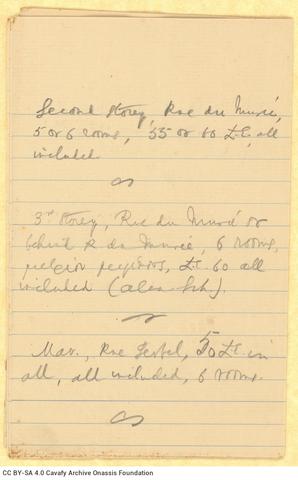 Second Storey, Rue du Musée,
5 or 6 rooms, 55 or 60 L.E., all
included.
3rd Storey, Rue du Musée or
behind R. du Musée, 6 rooms,
L.E. 60 all
included
Mav., Rue Lepsius, 50 L.E. in
all, all included, 6 rooms.
CC BY-SA 4.0 Cavafy Archive Onassis Foundation